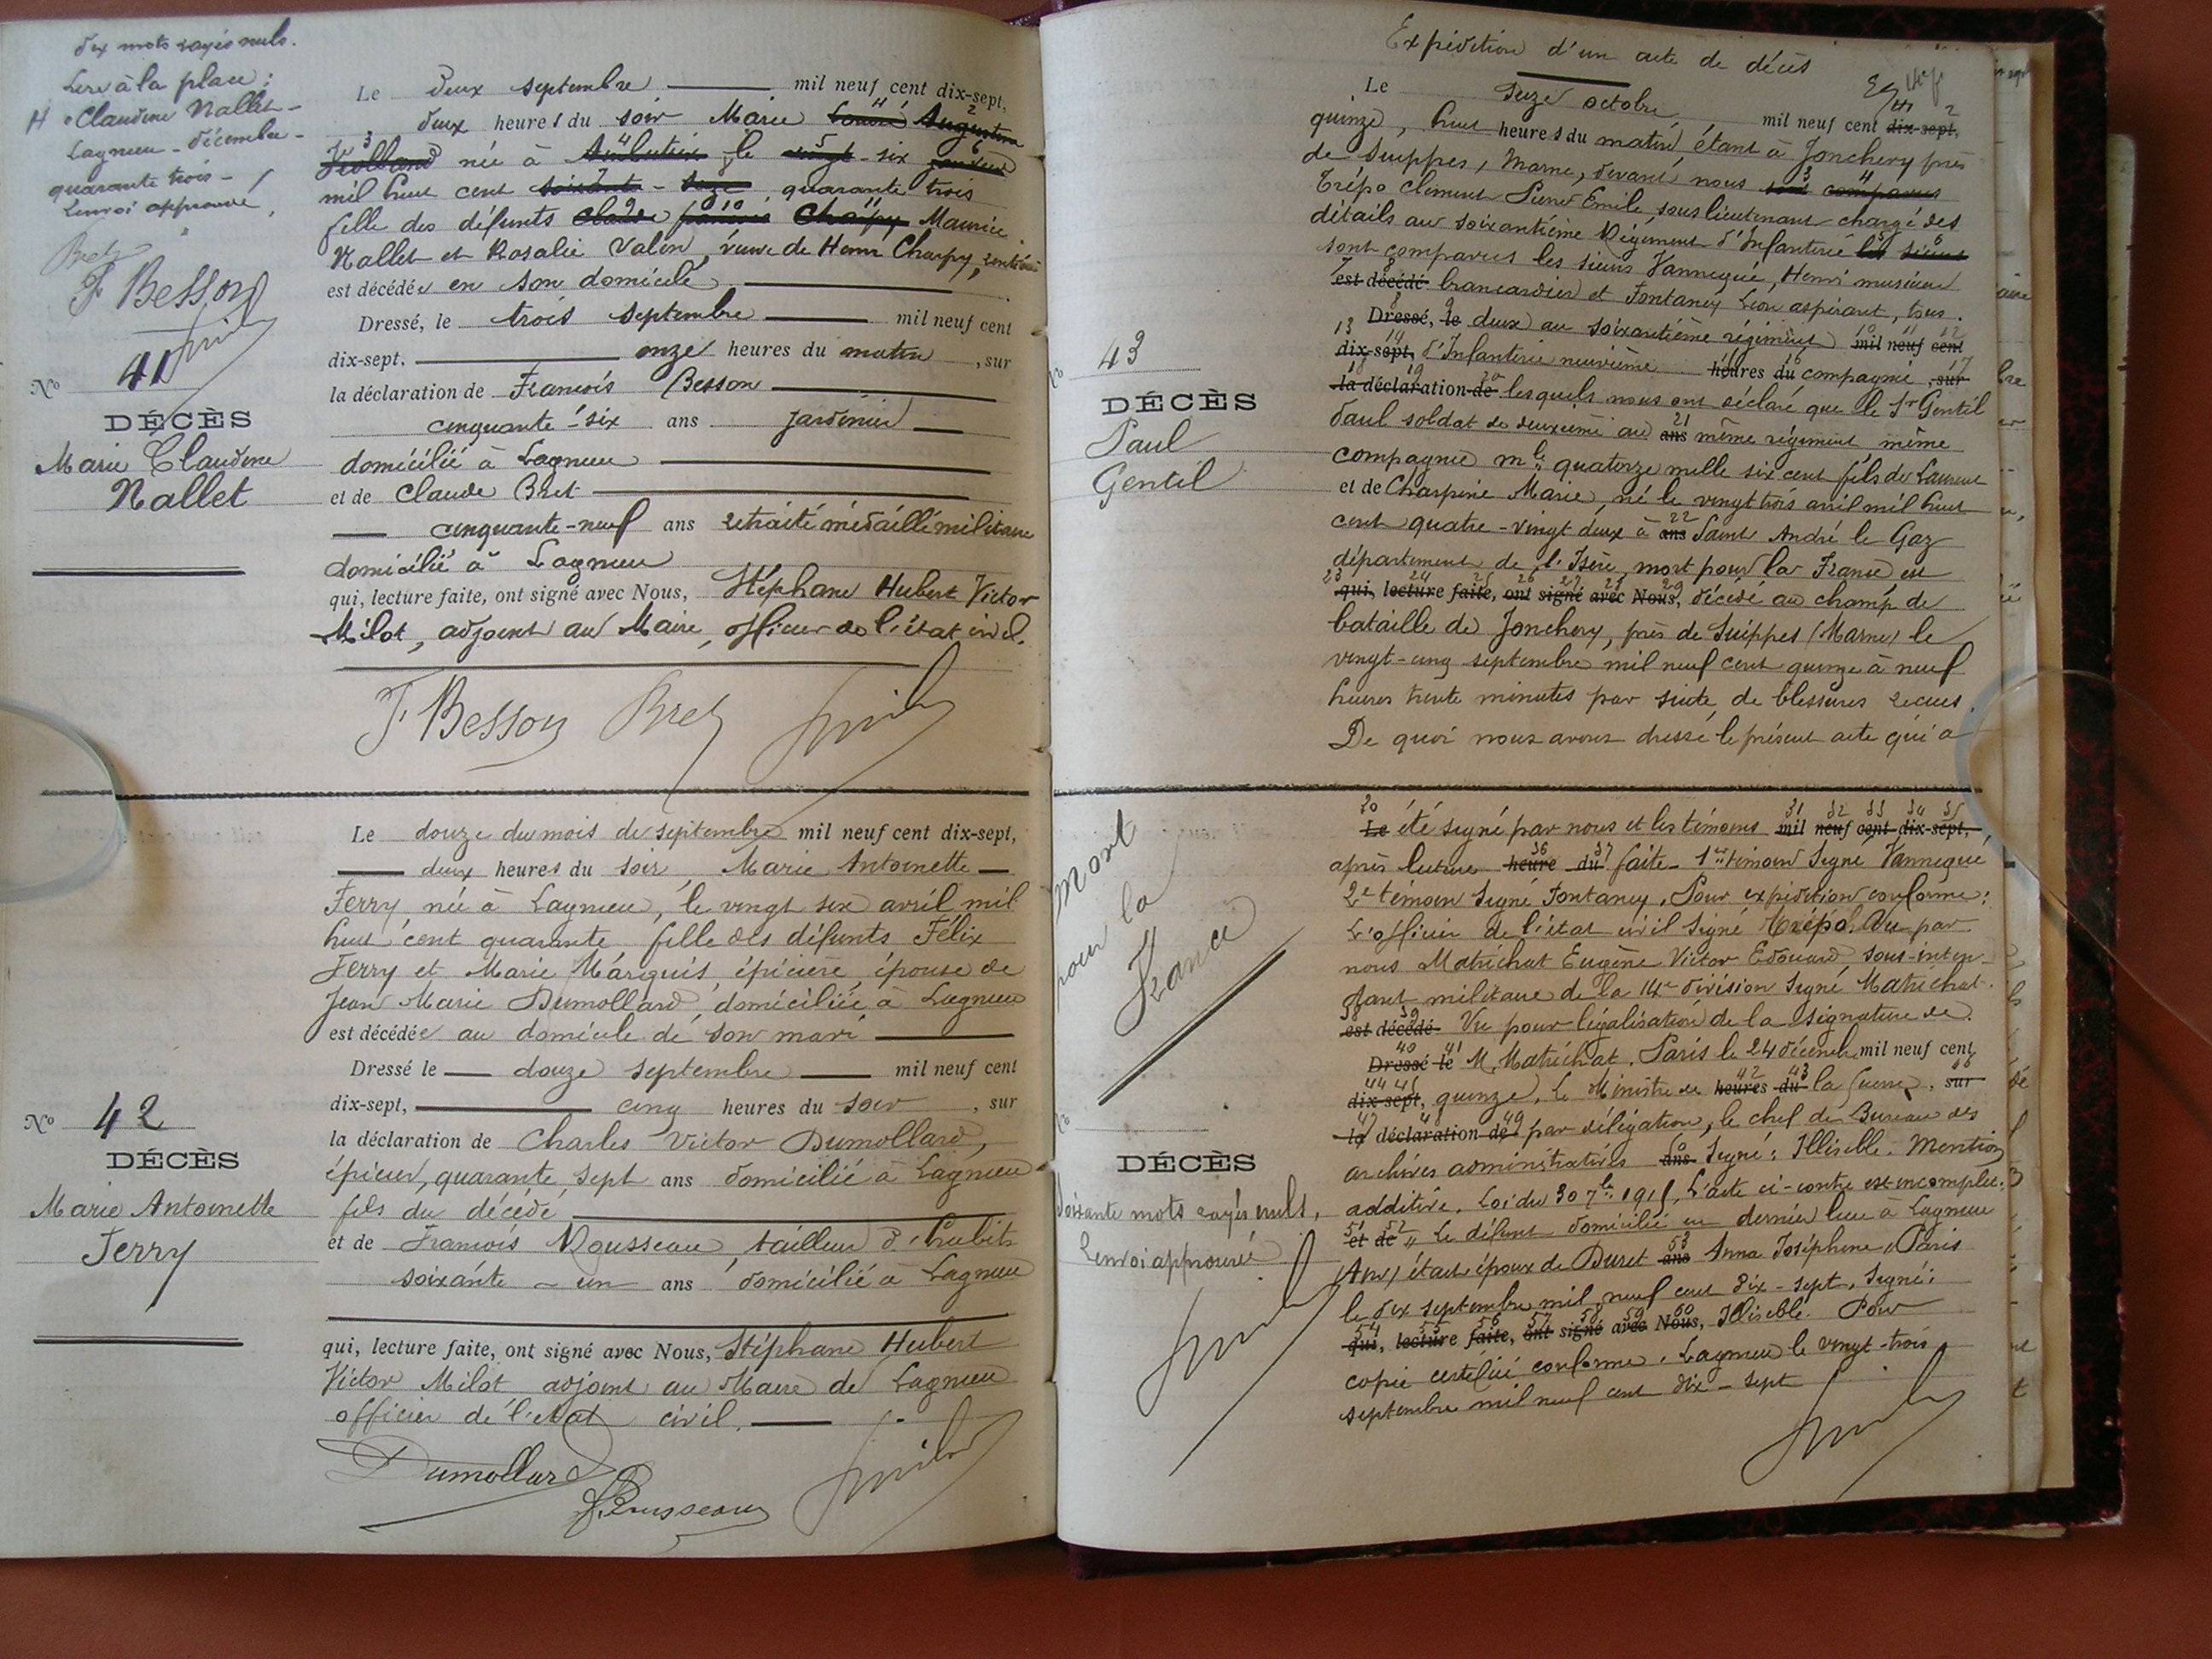 dix mots rayés nuls.
Lire à la place :
H Claudine Nallet -
Lagnieu - décembre -
quarante trois -
Renvoi approuvé
Bret
F Besson
Nº 41
DÉCÈS
Marie Claudine
Nallet
Le deux septembre mil neuf cent dix-sept,
deux heures du soir Marie Augustine
née à le six
mil huit cent quarante trois
fille des défunts Maurice
Nallet et Rosalie Valen, veuve de Henri Charpy, rentière
est décédée en son domicile
Dressé, le trois septembre mil neuf cent
dix-sept. onze heures du matin, sur
la déclaration de François Besson
cinquante-six ans jardinier
domicilié à Lagnieu
et de Claude Bret
cinquante-neuf ans retraité médaillé militaire
domicilié à Lagnieu
qui, lecture faite, ont signé avec Nous, Stéphane Hubert Victor
Milot, adjoint au Maire, officier de l'état civil.
F. Besson Bret
Nº 42
DÉCÈS
Marie Antoinette
Ferry
Le douze du mois de septembre mil neuf cent dix-sept,
deux heures du soir, Marie Antoinette
Ferry, née à Lagnieu, le vingt six avril mil
huit cent quarante fille des défunts Félix
Ferry et Marie Marquis, épicière, épouse de
Jean Marie Dumollard, domiciliée à Lagnieu
est décédée au domicile de son mari
Dressé le douze septembre mil neuf cent
dix-sept, cinq heures du soir, sur
la déclaration de Charles Victor Dumollard,
épicier, quarante sept ans domicilié à Lagnieu
fils du décédé
et de François Rousseau, tailleur d'habits
soixante - un ans domicilié à Lagnieu
qui, lecture faite, ont signé avec Nous, Stéphane Hubert
Victor Milot adjoint au Maire de Lagnieu
officier de l'etat civil.
Dumollard
F. Rousseau
Expédition d'un acte de décès
43
DÉCÈS
Paul
Gentil
Le octobre mil neuf cent dix-sept,
quinze, huit heures du matin, étant à Jonchery près
de Suippes, Marne, devant nous
Trépo Clément Pierre Emile, sous lieutenant chargé des
détails au soixantième Régiment d'Infanterie les sieurs
sont comparus les sieurs Vannequé, Henri musicien
est décédé brancardier et Fontaney Léon aspirant, tous
Dressé, le deux au soixantième régiment mil neuf cent
dix-sept, d'Infanterie neuvième heures du compagnie, sur
la déclaration de lesquels nous ont déclaré que le Sr Gentil
Paul soldat de deuxième au ans même régiment même
compagnie mle quatorze mille six cent fils de Laurent
et de Charpine Marie, né le vingt trois avril mil huit
cent quatre-vingt deux à ans Saint André le Gaz
département de l'Isère, mort pour la France est
qui, lecture faite, ont signé avec Nous, décédé au champ de
bataille de Jonchery, près de Suippes (Marne) le
vingt-cinq septembre mil neuf cent quinze à neuf
heures trente minutes par suite de blessures reçues.
De quoi nous avons dressé le présent acte qui a
Mort
pour la
France
DÉCÈS
Soixante mots rayés nuls,
Renvoi approuvé
Le été signé par nous et les témoins mil neuf cent dix-sept,
après lecture heure du faite - 1er témoin Signé Vannequé
2e témoin Signé Fontaney. Pour expédition conforme :
L'officier de l'état civil Signé Trépo. Vu par
nous Matrichat Eugène Victor Edouard sous-inten-
dant militaire de la 14e division Signé Matrichat.
est décédé Vu pour légalisation de la signature de
Dressé le M. Matrichat. Paris le 24 décemb. mil neuf cent
dix-sept, quinze, Le Ministre de heures du la Guerre, sur
la déclaration de par délégation, le chef de Bureau des
archives administratives ans Signé : Illisible. Mention
additive. Loi du 30 7bre 1915, L'acte ci-contre est incomplet :
et de " Le défunt domicilié en dernier lieu à Lagnieu
(Ain) était époux de Duret ans Anna Joséphine. Paris
le dix septembre mil neuf cent dix-sept, Signé :
qui, lecture faite, ont signé avec Nous, Illisible. Pour
copie certifiée conforme. Lagnieu le vingt-trois
septembre mil neuf cent dix-sept